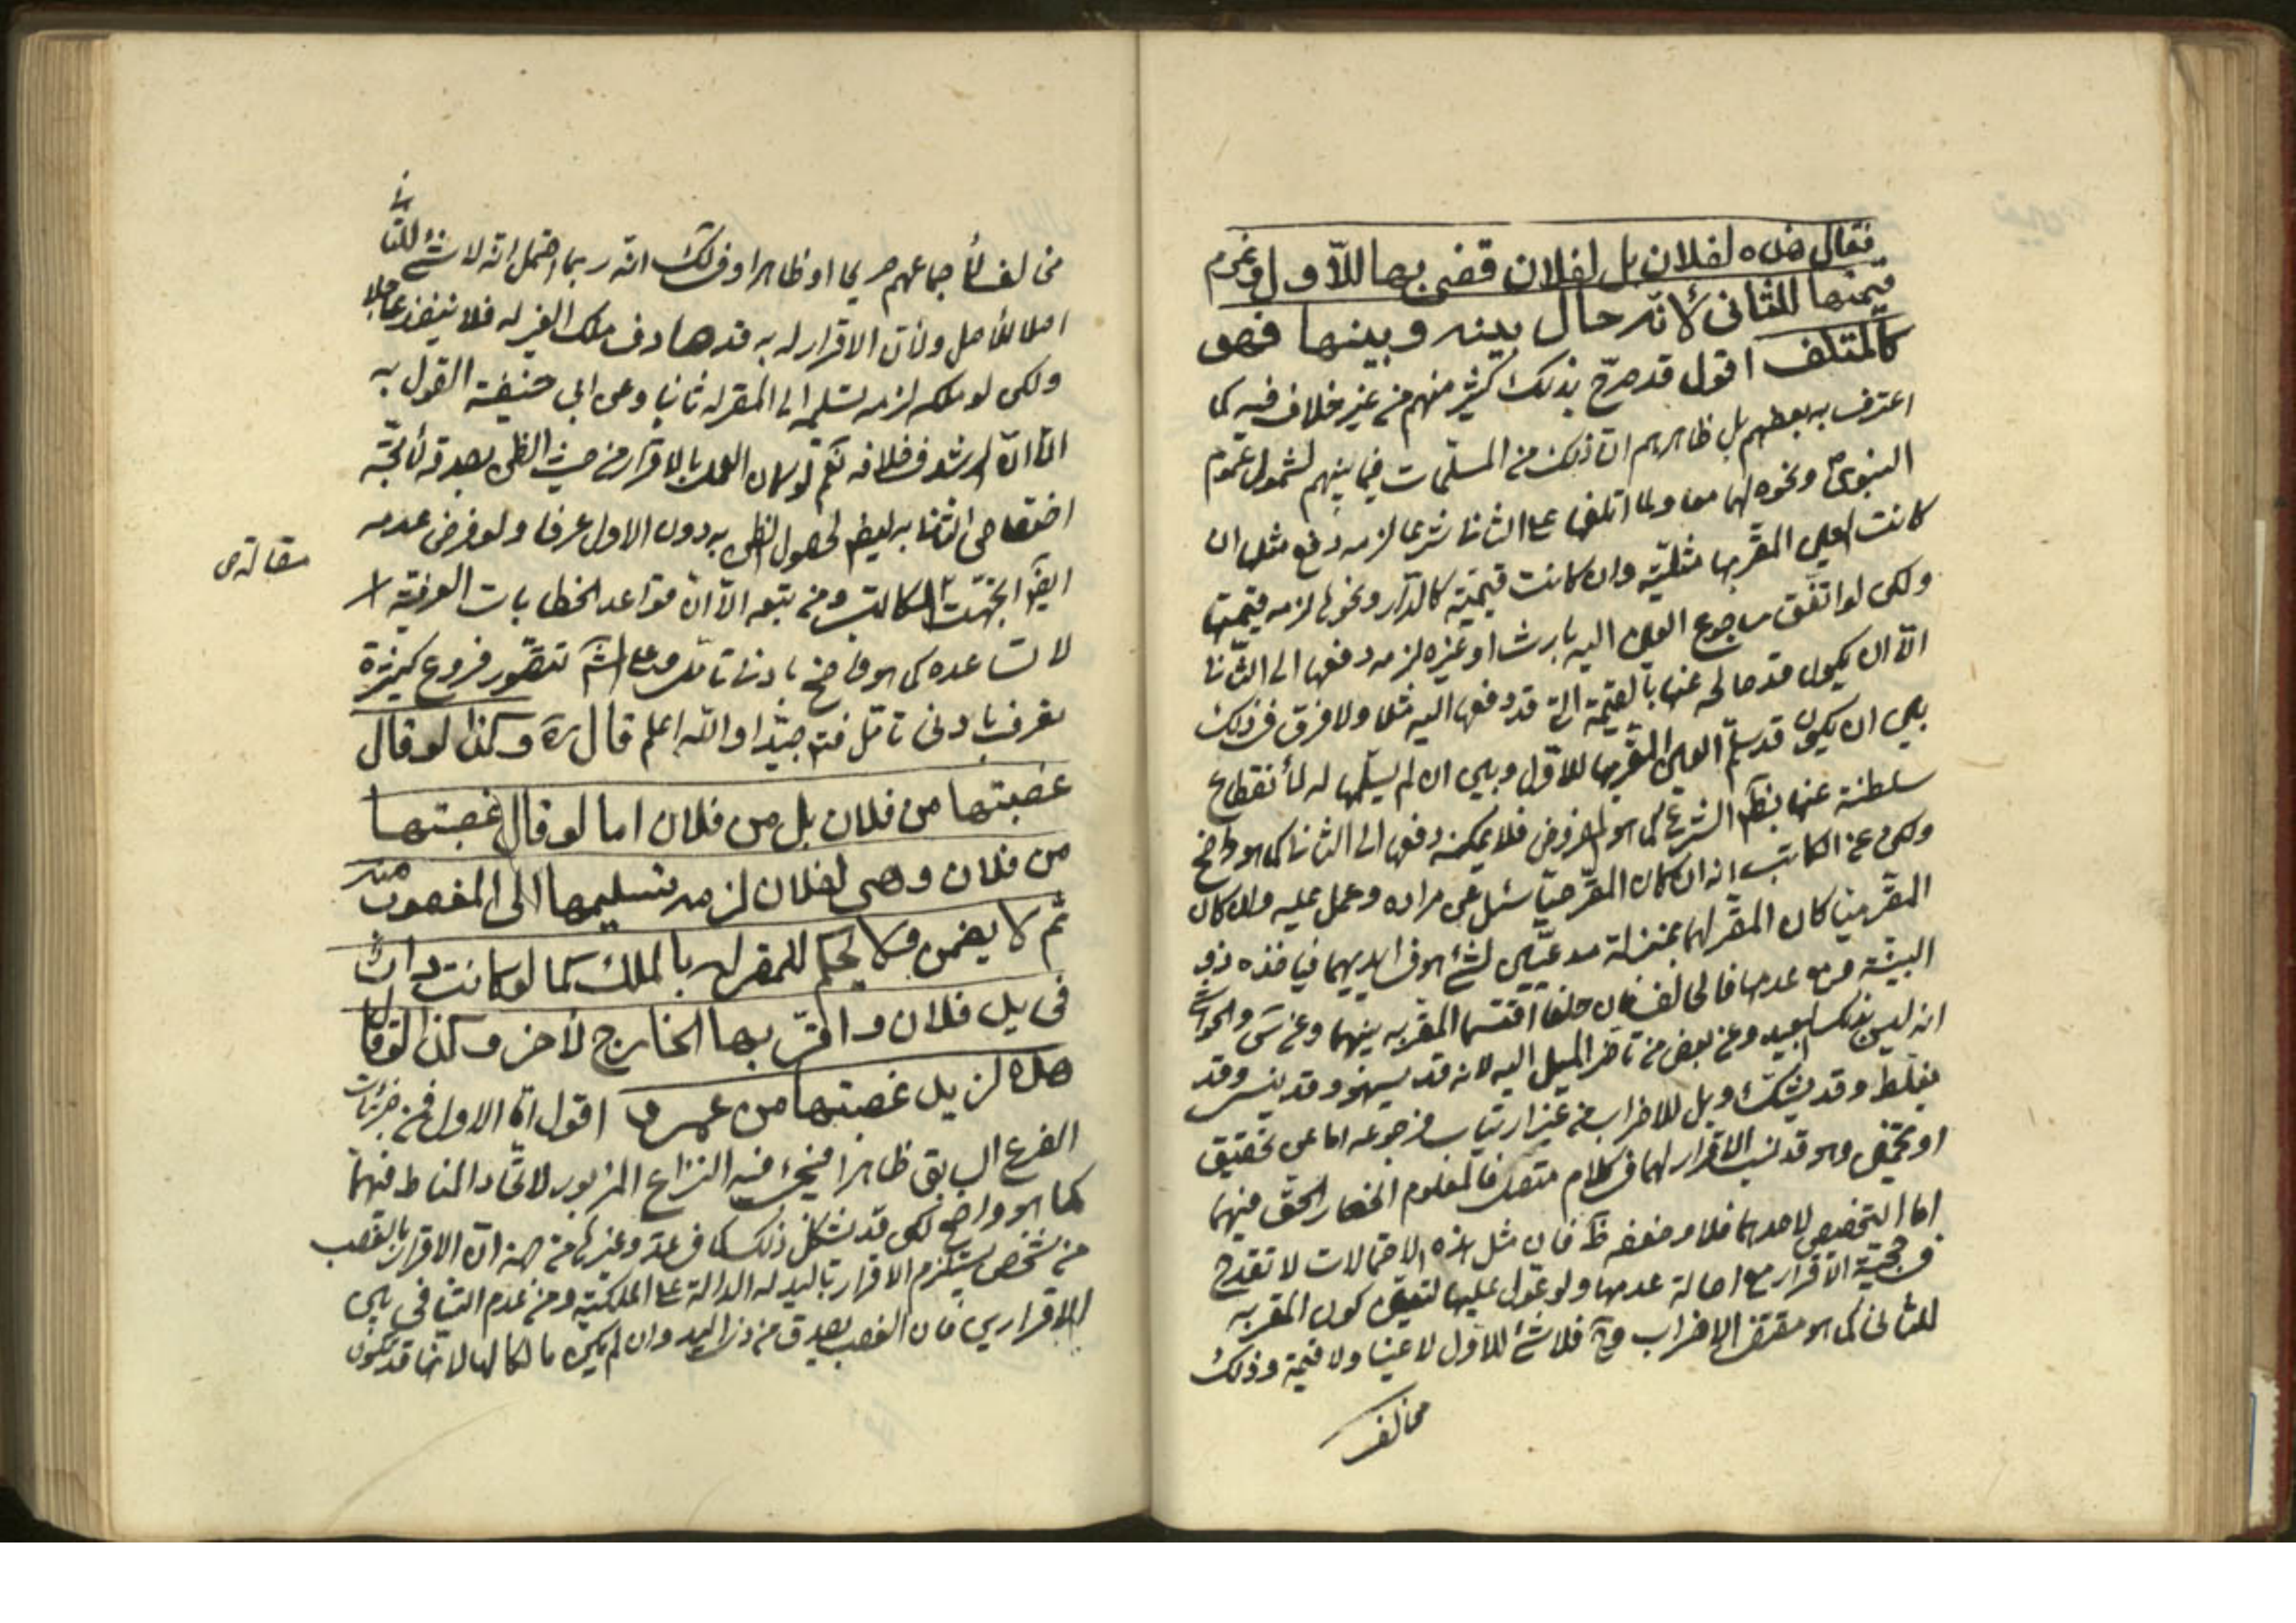 فقال هذه لفلان بل لفلان قضى بها للاول وغرم
قيمتها للثانى لانه حال بينه وبينها فهو
كالمتلف اقول قد صرح بذلك كثير منهم من غير خلاف فيه كما
اعترف به بعضهم بل ظاهرهم ان ذلك من المسلمات فيما بينهم لشمول عموم
النبوى ونحوه لهما معا ولما اتلفها على الثانى شرعا لزمه دفع مثلها ان
كانت العين المقر بها مثلية وان كانت قيمية كالدار ونحوها لزمه قيمتها
ولكن لو اتفق رجوع العين اليه بارث او غيره لزمه دفعها الى الثانى
الا ان يكون قد صالحه عنها بالقيمة التى قد دفعها اليه مثلا ولا فرق فى ذلك
بين ان يكون قد سلم العين المقر بها للاول وبين ان لم يسلمها له لانقطاع
سلطنته عنها بنظر الشرع كما هو المفروض فلا يمكنه دفعها الى الثانى كما هو واضح
وحكى عن الكاتب انه ان كان المقر حيا سئل عن مراده وعمل عليه وان كان
المقر ميتا كان المقر لهما بمنزلة مدعيين لشئ هو فى ايديهما فياخذه ذو
البينة ومع عدمها فالحالف فان حلفا اقتسما المقر به بينهما وعن
انه ليس بذلك البعيد وعن بعض من تاخر الميل اليه لانه قد يسهو وقد ينسى وقد
يغلط وقد يشك وبل للاضراب من غير ارتياب فرجوعه اما عن تحقيق
او تخمين وهو قد نسب الاقرار لهما فى كلام متصل فالمعلوم انحصار الحق فيهما
اما التخصيص لاحدهما فلا وضعفه ظ فان مثل هذه الاحتمالات لا تقدح
فى حجية الاقرار مع اصالة عدمها ولو عول عليها لتعين كون المقر به
للثانى كما هو مقتضى الاضراب وح فلا شئ للاول لا عينا ولا قيمة وذلك
مخالف
مخالف لاجماعهم صريحا او ظاهرا وفى لك انه ربما احتمل انه لا شئ للثانى
اصلا للاصل ولان الاقرار له به قد صادف ملك الغير له فلا ينفذ عاجلا
ولكن لو ملكه لزمه تسليمه الى المقر له ثانيا وعن ابى حنيفة القول به
الا انه لم نعثر لو كان العمل بالاقرار من حيث الظن بصدقه لاتجه
اختصاص الثانى به ايضا لحصول الظن به دون الاول عرفا ولو فرض عدمه
ايضا اتجهت الكاتب ومن تبعه الا ان قواعد الخطابات العرفية
مقالة
لا تساعده كما هو واضح بادنى تامل وعلى تتصور فروع كثيرة
تعرف بادنى تامل فتدبر جيدا والله اعلم قال ره وكذا لو قال
غصبتها من فلان بل من فلان اما لو قال غصبتها
من فلان وهى لفلان لزمه تسليمها الى المغصوب منه
ثم لا يضمن ولا يحكم للمقر له بالملك كما لو كانت دار
فى يد فلان واقر بها الخارج لآخر وكذا لو قال
هذه لزيد غصبتها من عمرو اقول ان الاول من جزئيات
الفرع السابق ظاهرا فيجئ فيه النزاع المزبور لاتحاد المناط فيهما
كما هو واضح لكن قد يشكل ذلك كما فى عد وغيرها من جهة ان الاقرار بالغصب
من شخص يستلزم الاقرار باليد له الدالة على الملكية ومن عدم التنافى بين
الاقرارين فان الغصب يصدق من ذى اليد وان لم يكن مالكا لها لانها قد تكون